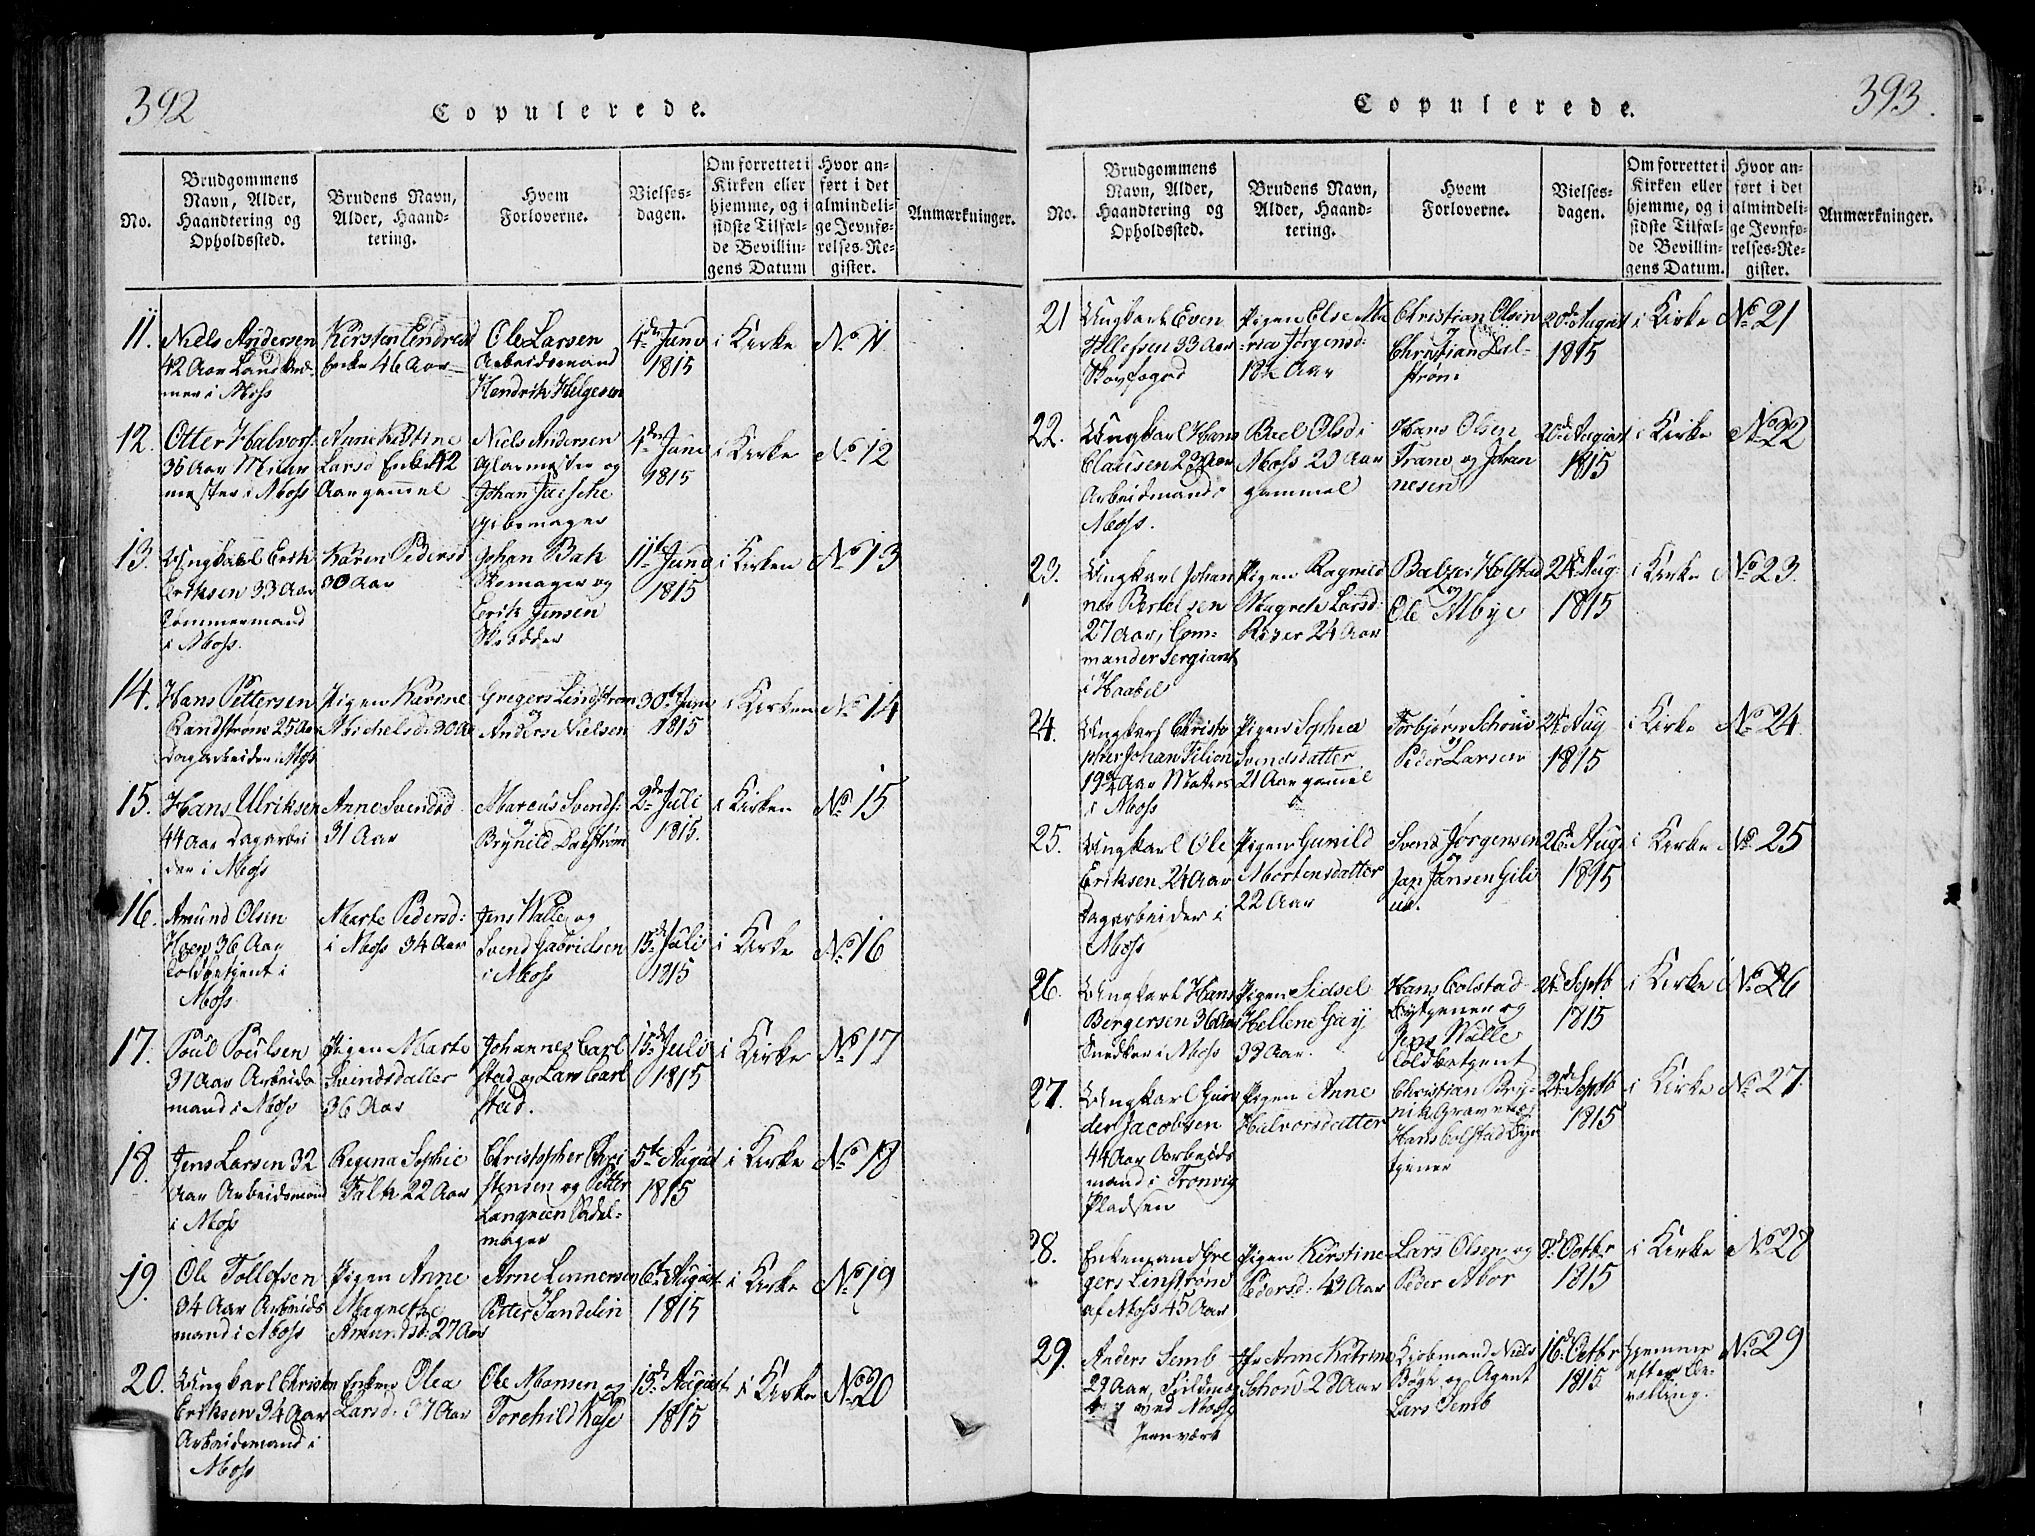 392
Copulerede.
No.
Brudgommens
Navn, Alder,
Haandtering og
Opholdssted.
Brudens Navn,
Alder, Haand-
tering.
Hvem
Forloverne.
Vielses-
dagen.
Om forrettet i
Kirken eller
hjemme, og i
sidste Tilfæl-
de Bevillin-
gens Datum
Hvor an-
ført i det
almindeli-
ge Jevnfø-
relses-Re-
gister.
Anmærkninger.
11.
Niels Andersen
42 Aar
mer i Moss
Kirsten Endresd
Enke 46 Aar
Ole Larsen
Arbeidsmand
Hendrik Helgesen
4de Juno
1815
i Kirke
No 11
12.
Otter Halvors.
36 Aar Muur
mester i Moss
Anne Kistine
Larsd Enke 42
Aar gamel
Niels Andersen
Glarmester og
Johan Jaesche
Gibsmager
4de Juno
1815
i Kirke
No 12
13.
Ungkarl Erik
Eriksen 33 Aar
Tømmermand
i Moss.
Karen Pedersd
30 Aar
Johan Bak
Skomager og
Erik Jensen
Skrædder
11te Juno
1815
i Kirken
No 13
14.
Hans Pettersen
Randstrøm 25 Aar
Dagarbeider i Moss
Pigen Karine
Michelsd: 30 Aar
Gregers Lindstrøm
og
Anders Nielsen
30te Juni
1815
i Kirken
No 14
15.
Hans Ulriksen
44 Aar Dagarbei
der i Moss
Anne Svendsd
31 Aar
Marcus Svends:
og
Brynild Dalstrøm
2den Juli
1815.
i Kirken
No 15
16.
Amund Olsen
Hoen 36 Aar
Toldbetjent i
Moss
Marte Pedersd:
i Moss 34 Aar
Jens Walle og
Svend Gabrielsen
i Moss
15de Juli
1815
i Kirke
No 16
17.
Poul Poulsen
31 Aar Arbeids
mand i Moss
Pigen Marte
Svendsdatter
36 Aar
Johannes Carl
stad og Lars Carl
stad.
15de Juli
1815
i Kirke
No 17
18.
Jens Larsen 32
Aar Arbeidsmand
i Moss
Regina Sophie
Falk 22 Aar
Christopher Chri
stensen og Petter
Langreen Sadel-
mager
5te August
1815
i Kirke
No 18
19.
Ole Tollefsen
34 Aar Arbeids
mand i Moss
Pigen Anne
Magrethe
Amundsd: 27 Aar
Arne Lennersen
og
Petter Sandelin
6te August
1815
i Kirke
No 19
20.
Ungkarl Christen
Eriksen 34 Aar
Arbeidsmand i
Moss
Enken Olea
Larsd: 37 Aar
Ole Monsen og
Torchild Kase
13de August
1815
i Kirke
No 20
393.
Copulerede.
No.
Brudgommens
Navn, Alder,
Haandtering og
Opholdssted.
Brudens Navn,
Alder, Haand-
tering.
Hvem
Forloverne.
Vielses-
dagen.
Om forrettet i
Kirken eller
hjemme, og i
sidste Tilfæl-
de Bevillin-
gens Datum.
Hvor an-
ført i det
almindeli-
ge Jevnfø-
relses-Re-
gister.
Anmærkninger.
21
Ungkarl Even
Tollefsen 33 Aar
Skovfoged
Pigen Else Ma
ria Jørgensd:
18½ Aar
Christian Olsen
Christian Dal-
strøm
20de August
1815
i Kirke
No 21
22.
Ungkarl Hans
Clausen 23 Aar
Arbeidmand i
Moss.
Beel Olsd i
Moss 23 Aar
gammel
Hans Olsen
Trane og Johan
nesen
20de August
1815
i Kirke
No 22
23.
Ungkarl Johan
nes Bertelsen
27 Aar, Com-
mander Sergiant
i Haabel
Pigen Ragnild
Magrete Larsd:
24 Aar
Balzer Holstad
og
Ole Albye
24de Aug:
1815
i Kirke
No 23.
24.
Ungkarl Christo
pher Johan
19¾ Aar Matros
i Moss
Pigen Sophia
Svendsdatter
21 Aar gamel
Torbjørn Schou
og
Peder Larsen
24de Aug
1815
i Kirke
No 24.
25.
Ungkarl Ole
Eriksen 24 Aar
Dagarbeider i
Moss
Pigen Gunild
Mortensdatter
22 Aar
Svend Jørgensen
og
Jan Jansen
26de Aug:
1815
i Kirke
No 25
26.
Ungkarl Hans
Bergersen 36 Aar
Snedker i Moss
Pigen Sidsel
Hellene Gay
33 Aar.
Hans Colstad
Bytjener og
Jens Walle
Toldbetjent
24de Septb
1815
i Kirke
No 26
27.
Ungkarl Gun
der Jacobsen
44 Aar Arbeids
mand i Tronvig
Pladsen
Pigen Anne
Halvorsdatter
Christian Bry-
nik Graver og
Hans Colstad By
tjener
24de Septb
1815
i Kirke
No 27
28.
Enkemand Gre
gers Linstrøm
af Moss 45 Aar
Pigen Kirstine
Pedersd: 43 Aar
Lars Olsen og
Peder Moor
8de Octbr
1815
i Kirke
No 28
29.
Anders Semb
29 Aar,
ved Moss
Jernværk
Jfr Anne Katrine
23 Aar
Kjøbmand Niels
Bøge og Agent
Lars Semb
16de Octbr
1815
hjemme
efter Be-
villing.
No 29